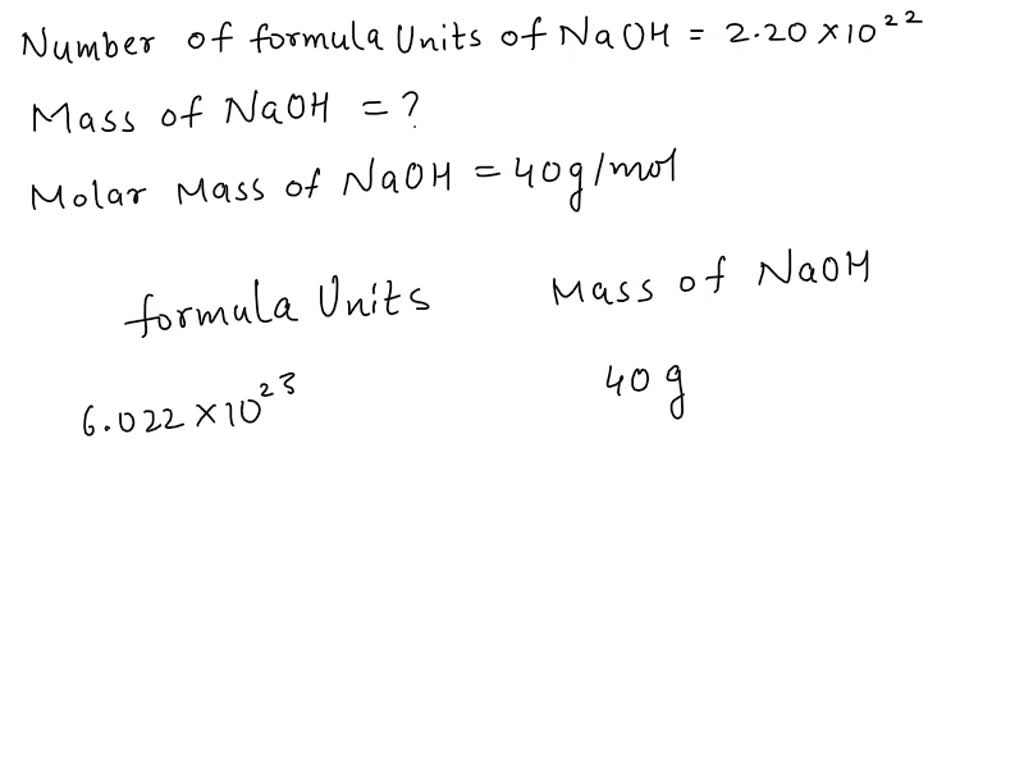 Number of formula Units of NaOH = 2.20 × 10²²
Mass of NaOH = ?
Molar Mass of NaOH = 40g/mol
formula Units Mass of NaOH
6.022 × 10²³ 40g